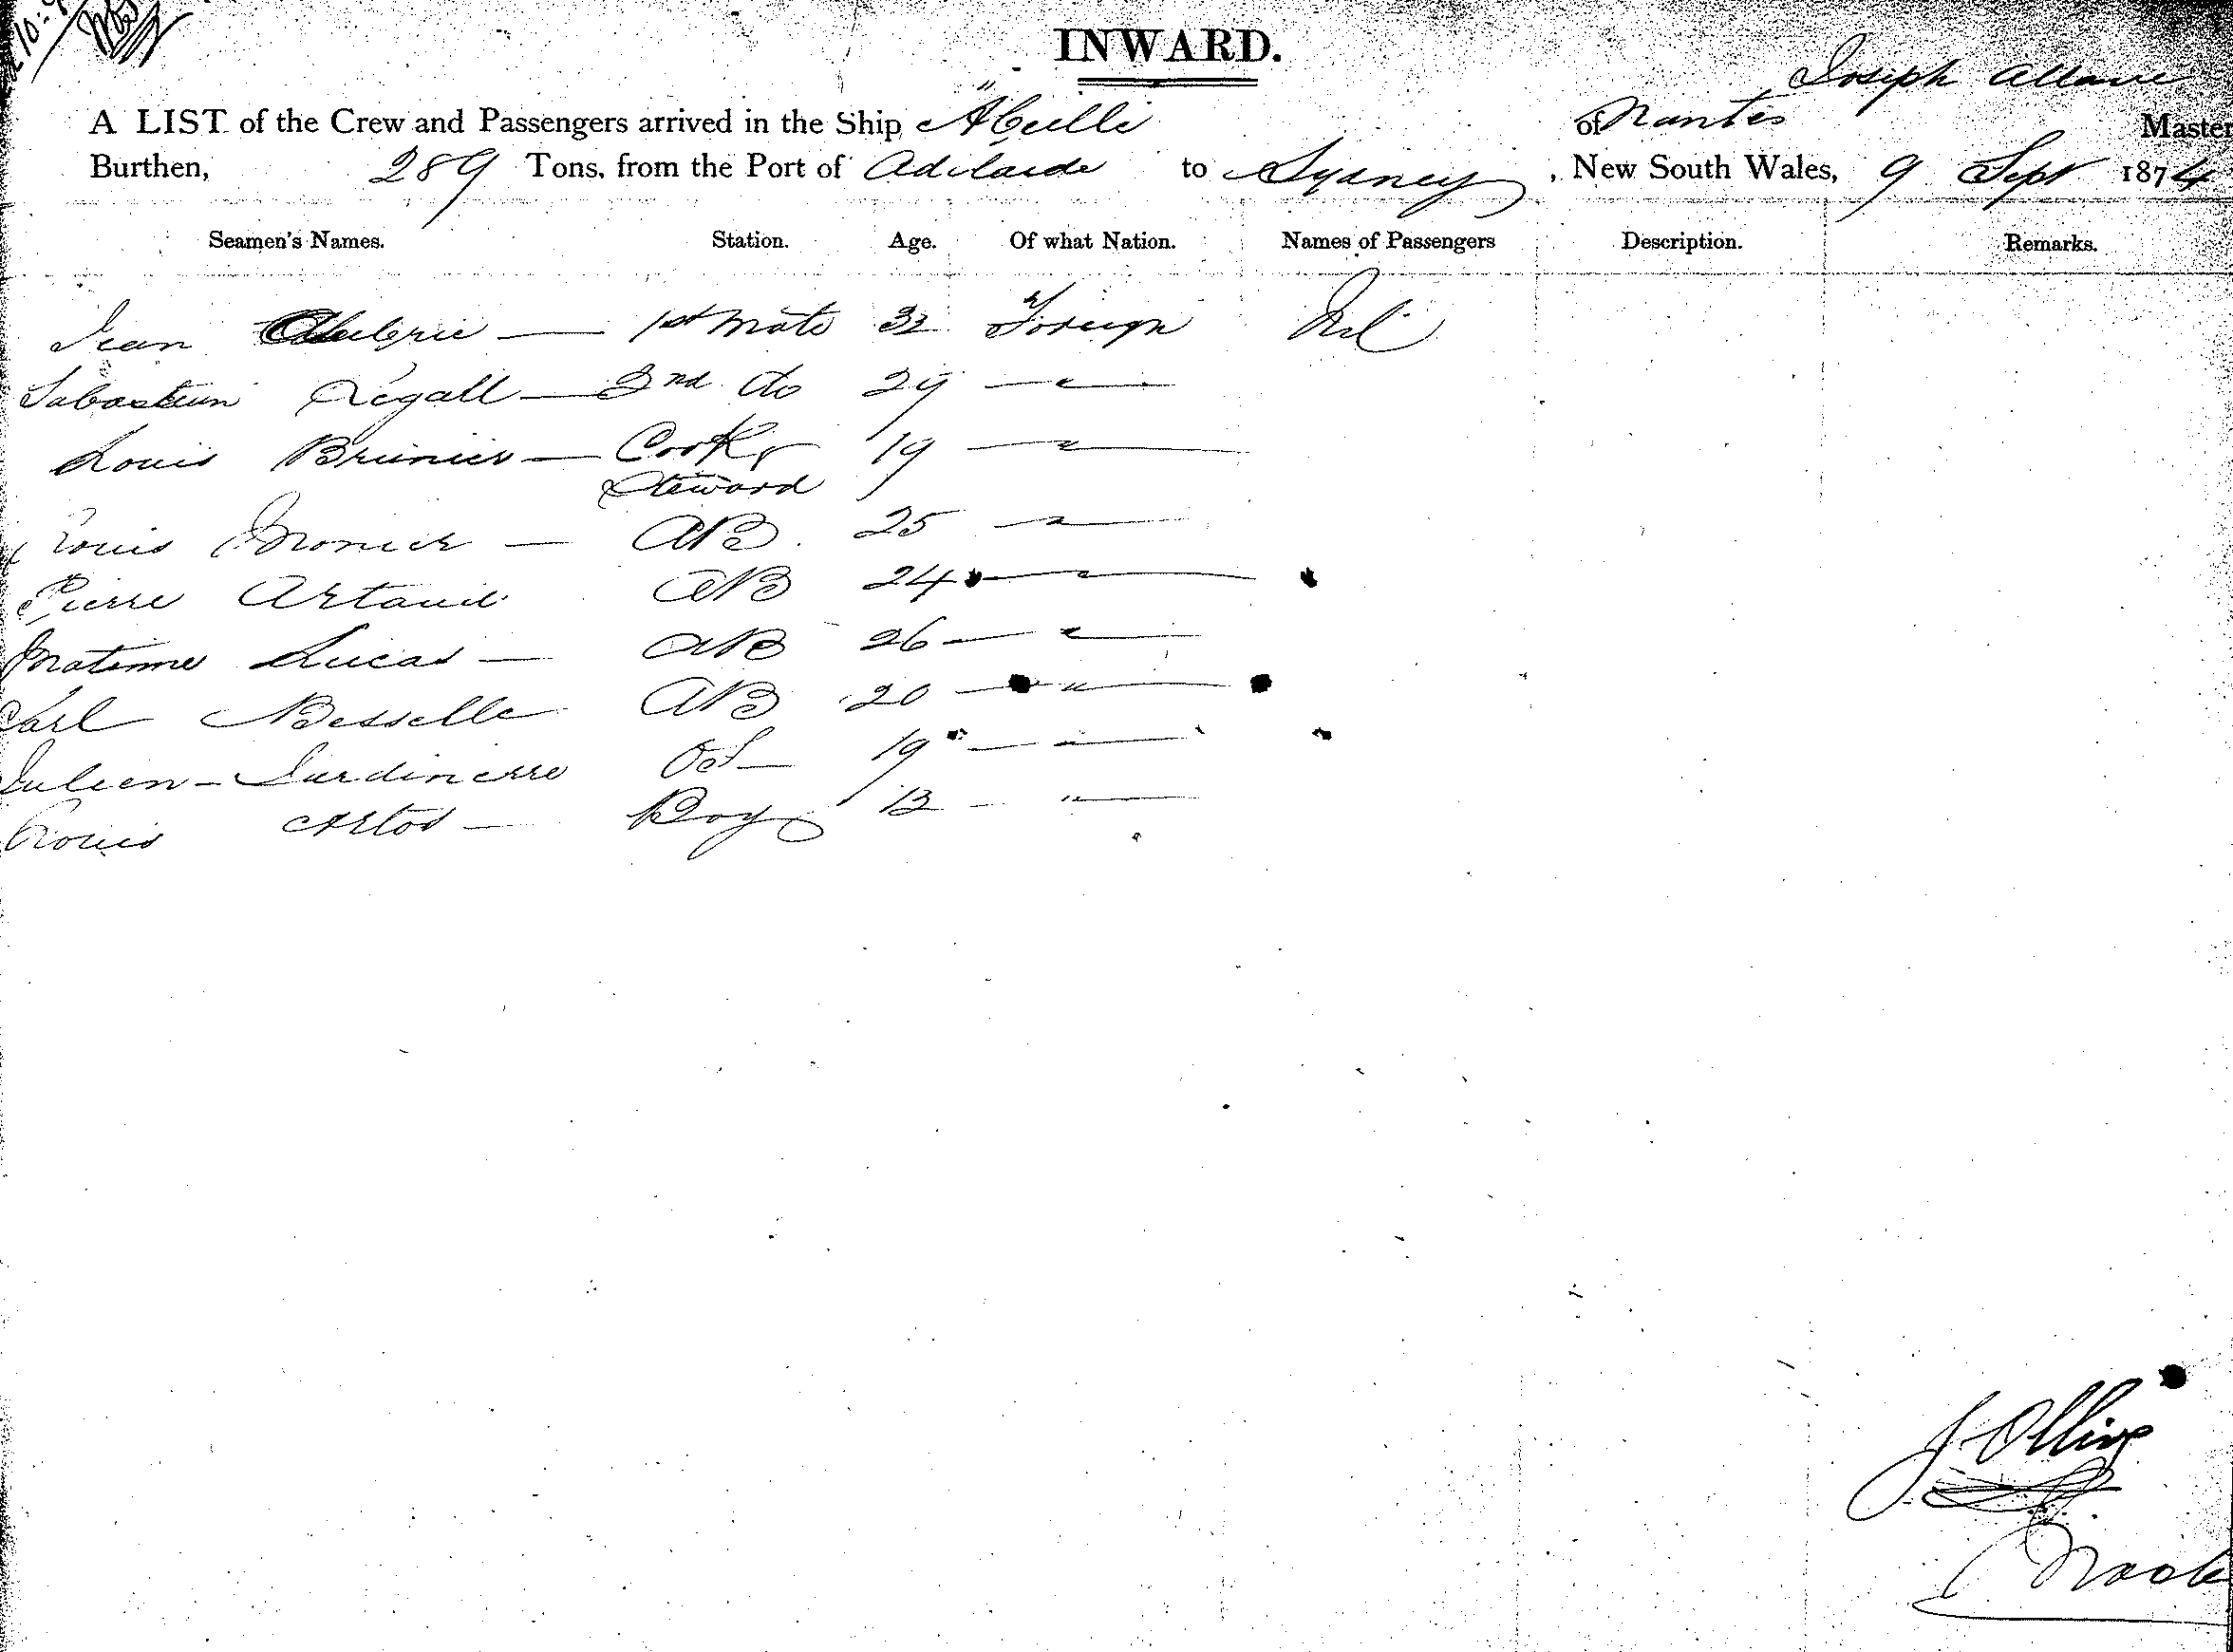 INWARD.
Joseph
A LIST of the Crew and Passengers arrived in the Ship "Abeille of Nantes Master
Burthen, 289 Tons, from the Port of Adelaide to Sydney, New South Wales, 9 Sept 1874
Seamen's Names. Station. Age. Of what Nation. Names of Passengers Description. Remarks.
Jean 1st Mate 32 Foreign Nil
Sabastien Legall — 2nd do 29 — " —
Louis Brunier — Cook & 19 — " —
Steward
Louis Monier — AB. 25 — " —
Pierre Artaud AB 24 — " —
Lucas — AB 26 — " —
Carl Besselle AB 20 — " —
Julien — OS — 19 — " —
Louis Artos — Boy 13 — " —